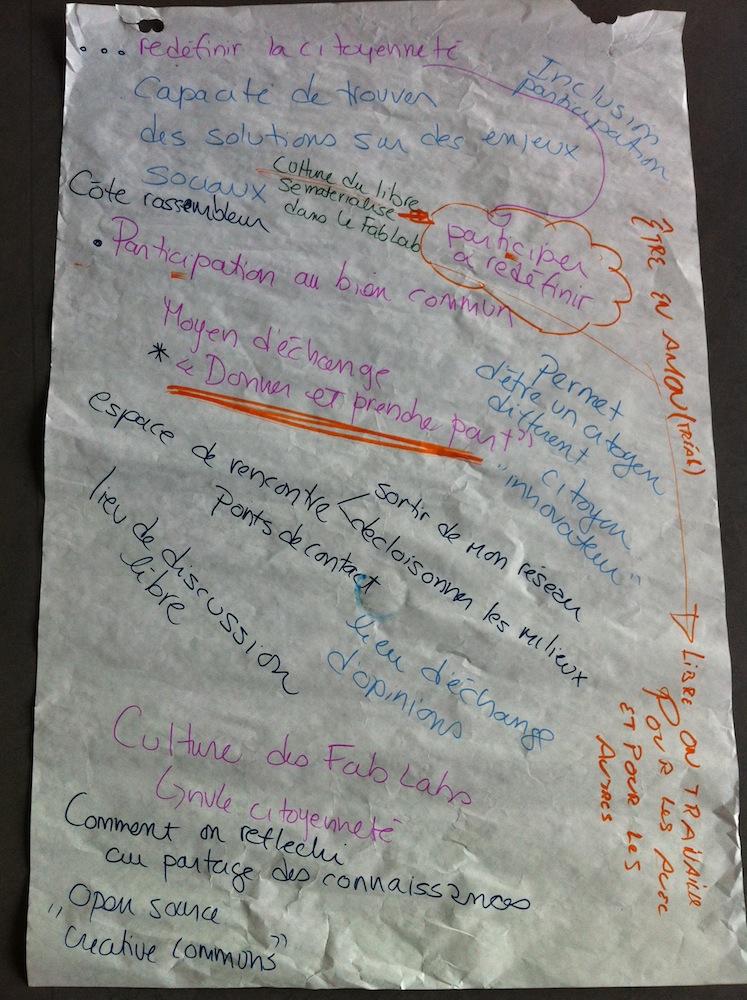 ... redéfinir la citoyenneté
Inclusion
participation
Capacité de trouver
des solutions sur des enjeux
sociaux
Culture du libre
se matérialise
dans le FabLab
Côté rassembleur
participer
à redéfinir
• Participation au bien commun
Moyen d'échange
* "Donner et prendre part"
ÊTRE EN AMOU(TRIAL)
Permet
d'être un citoyen
différent
citoyen
"innovateur"
espace de rencontre < sortir de mon réseau
décloisonner les milieux
Ponts de contact
lieu de discussion
libre
lieu d'échange
d'opinions
LIBRE ON TRAVAILLE
POUR LES AVEC
ET POUR LES
AUTRES
Culture des FabLabs
↳ nvle citoyenneté
Comment on réfléchi
au partage des connaissances
"Open source
Creative commons"